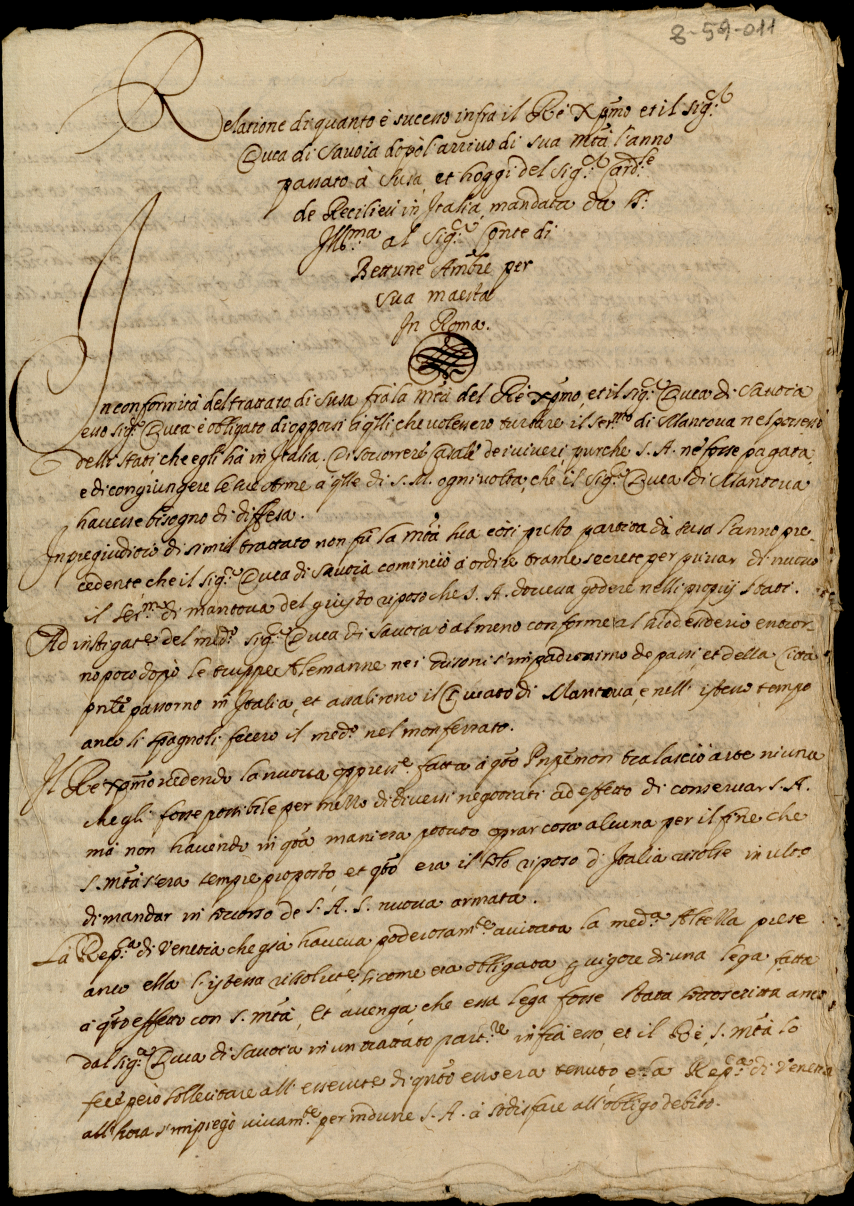 8-59-011
Relatione di quanto è sucesso infra il Rè Xp̃mo et il Sig.r
Duca di Savoia dopò l'arrivo di sua M.tà l'anno
passato à Susa, et hoggi del Sig.r Card.le
de Recilieù in Italia, mandata da S.
Ill.ma al Sig.r Conte di
Bettune Amb.re per
sua maestà
In Roma.
In conformità del trattato di Susa frà la M.tà del Rè Xp̃mo, et il sig.r Duca di Savoia
esso sig.r Duca è obligato di opporsi à q̃lli che volessero turbare il Ser.mo di Mantova nel possesso
delli stati che egli hà in Italia. Di soccorrere Casale de viveri purche S. A. ne fosse pagata,
e di congiungere le sue Arme à q̃lle di S. M. ogni volta, che il Sig.r Duca di Mantova
havesse bisogno di diffesa.
In pregiudicio di simil trattato non fù la M.tà sua così presto partita da Susa l'anno pre-
cedente che il sig.r Duca di Savoia cominciò à ordire trame secrete per privar di nuovo
il Ser.mo di Mantova del giusto riposo che S. A. doveva godere nelli proprij stati.
Ad instigat.e del med.o Sig.r Duca di Savoia ò almeno conforme al suo desiderio entror-
no poco doppò le truppe Alemanne nei Grisoni s'impadronirno de passi, et della Città
passorno in Italia, et assalirono il Ducato di Mantova, e nell'istesso tempo
anco li spagnoli fecero il med.o nel monferrato.
Il Rè Xp̃mo vedendo la nuova oppress.e fatta à q̃sto Pnp̃e non tralasciò arte niuna
che gli fosse possibile per mezzo di diversi negotiati ad effetto di conservar S. A.
mà non havendo in q̃sta maniera potuto oprar cosa alcuna per il fine che
S. M.tà s'era sempre proposto, et q̃sto era il solo riposo d'Italia risolse in ulto
di mandar in soccorso de S. A. S. nuova armata.
La Rep.ca di Venetia che già haveva poderosam.te aiutata la med.a Altezza prese
anco ella l'istessa risolut.e, si come era obligata p vigore di una lega fatta
à q̃sto effetto con S. M.tà, Et avenga che essa lega fosse stata sottoscritta anco
dal sig.r Duca di Savoia in un trattato part.re infrà esso, et il Rè, S. M.tà lo
fece però sollecitare all'essecut.e di q̃nto esso era tenuto e la Rep.ca di Venetia
all'hora s'impiegò vivam.te per indurre S. A. à sodisfare all'obligo debito.